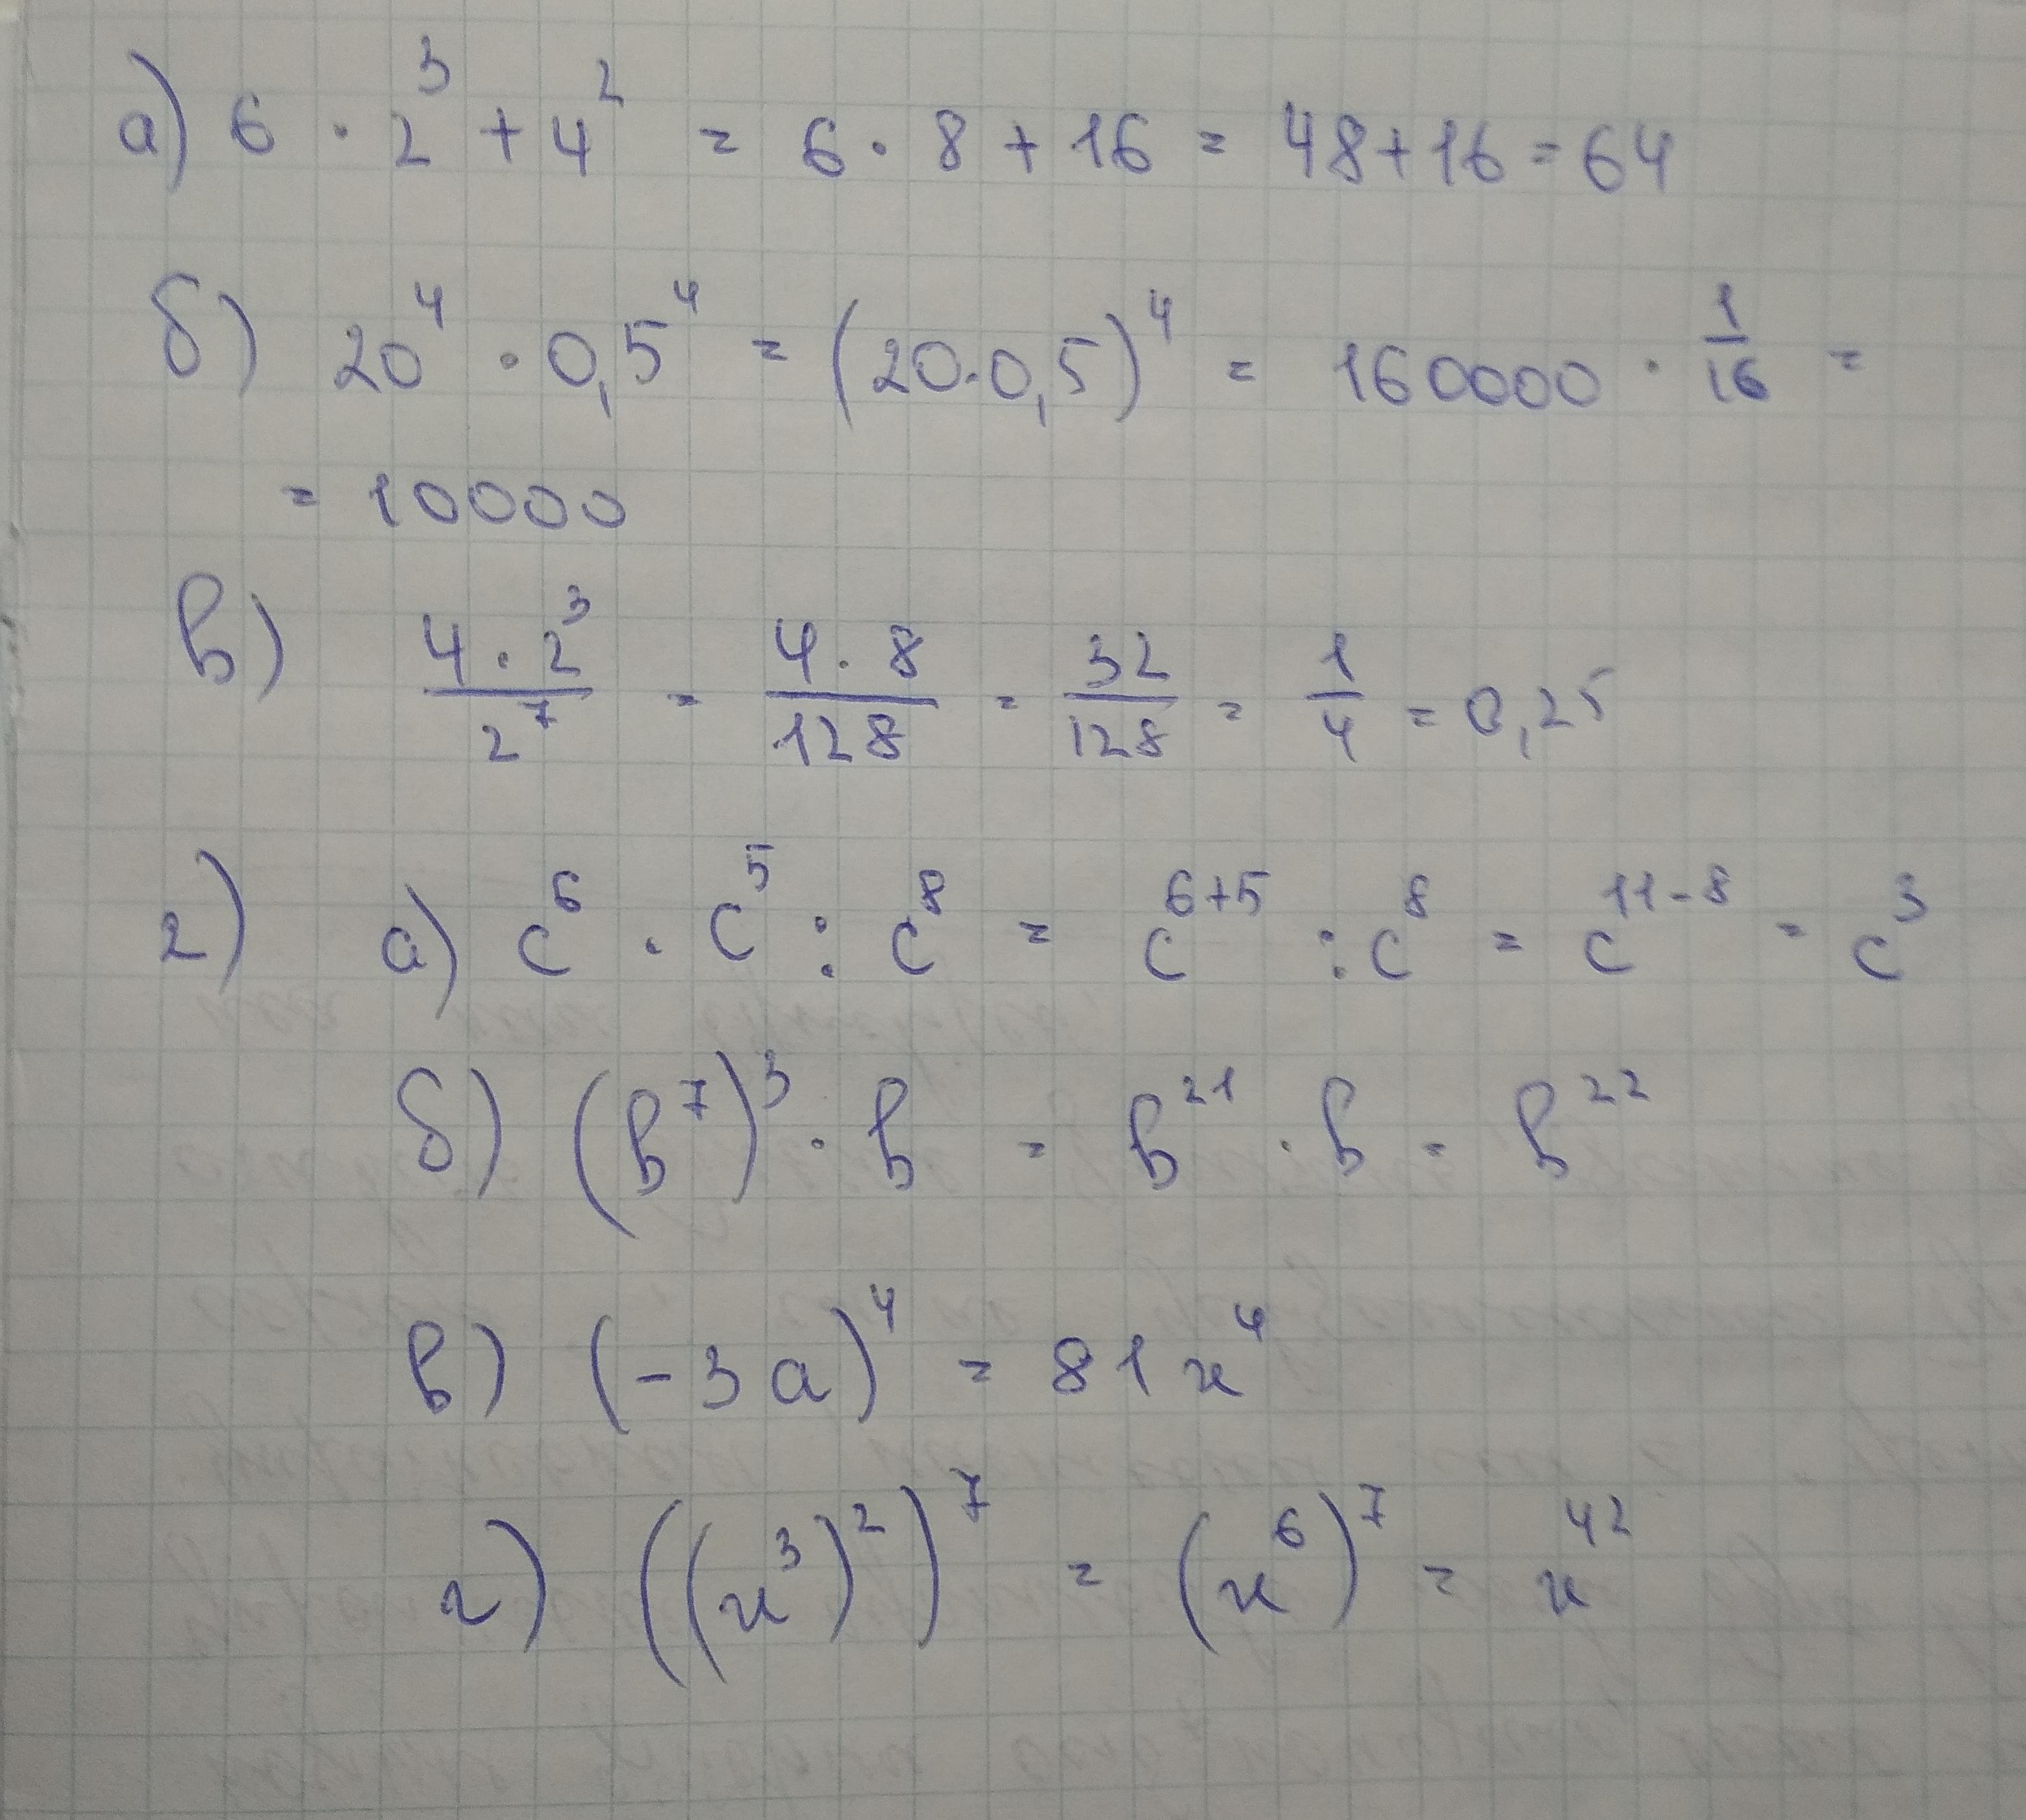 а) 6 · 2³ + 4² = 6 · 8 + 16 = 48 + 16 = 64
б) 20⁴ · 0,5⁴ = (20 · 0,5)⁴ = 160000 · 1/16 =
= 10000
в) 4 · 2³ / 2⁷ = 4 · 8 / 128 = 32/128 = 1/4 = 0,25
2) а) c⁶ · c⁵ : c⁸ = c⁶⁺⁵ : c⁸ = c¹¹⁻⁸ = c³
б) (b⁷)³ · b = b²¹ · b = b²²
в) (-3a)⁴ = 81x⁴
г) ((x³)²)⁷ = (x⁶)⁷ = x⁴²